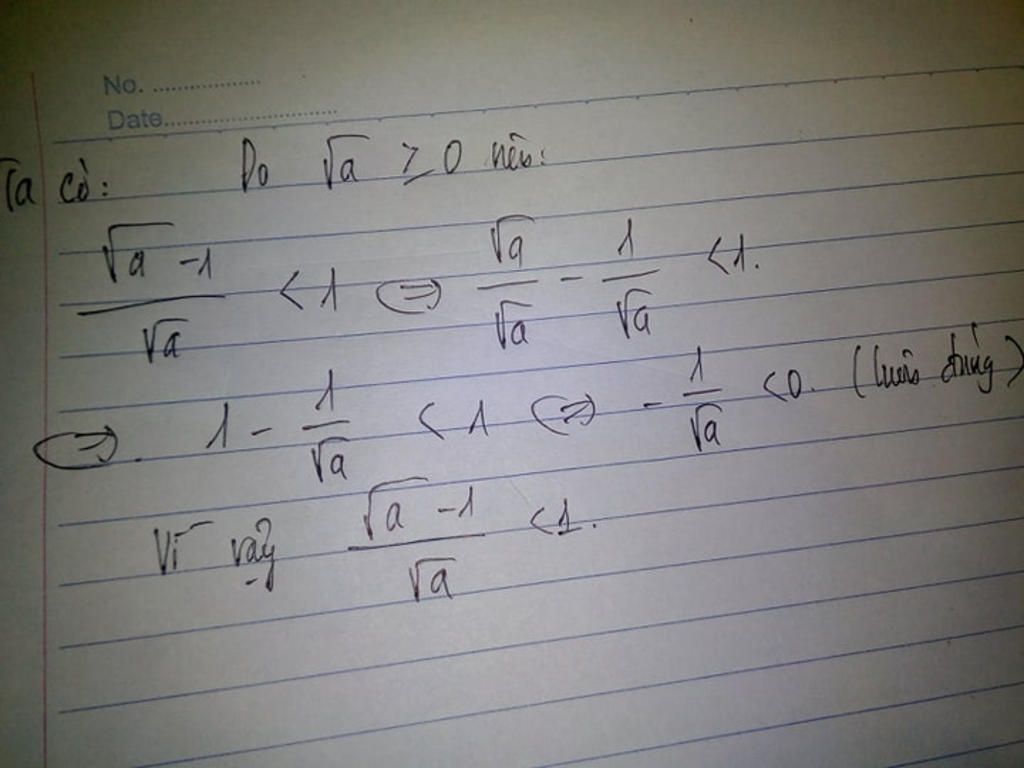 No. ....................
Date................................
Ta có: Do √a ≥ 0 nên:
(√a - 1)/√a < 1 ⇔ √a/√a - 1/√a < 1.
⇔. 1 - 1/√a < 1 ⇔ - 1/√a < 0. (luôn đúng)
Vì vậy (√a - 1)/√a < 1.